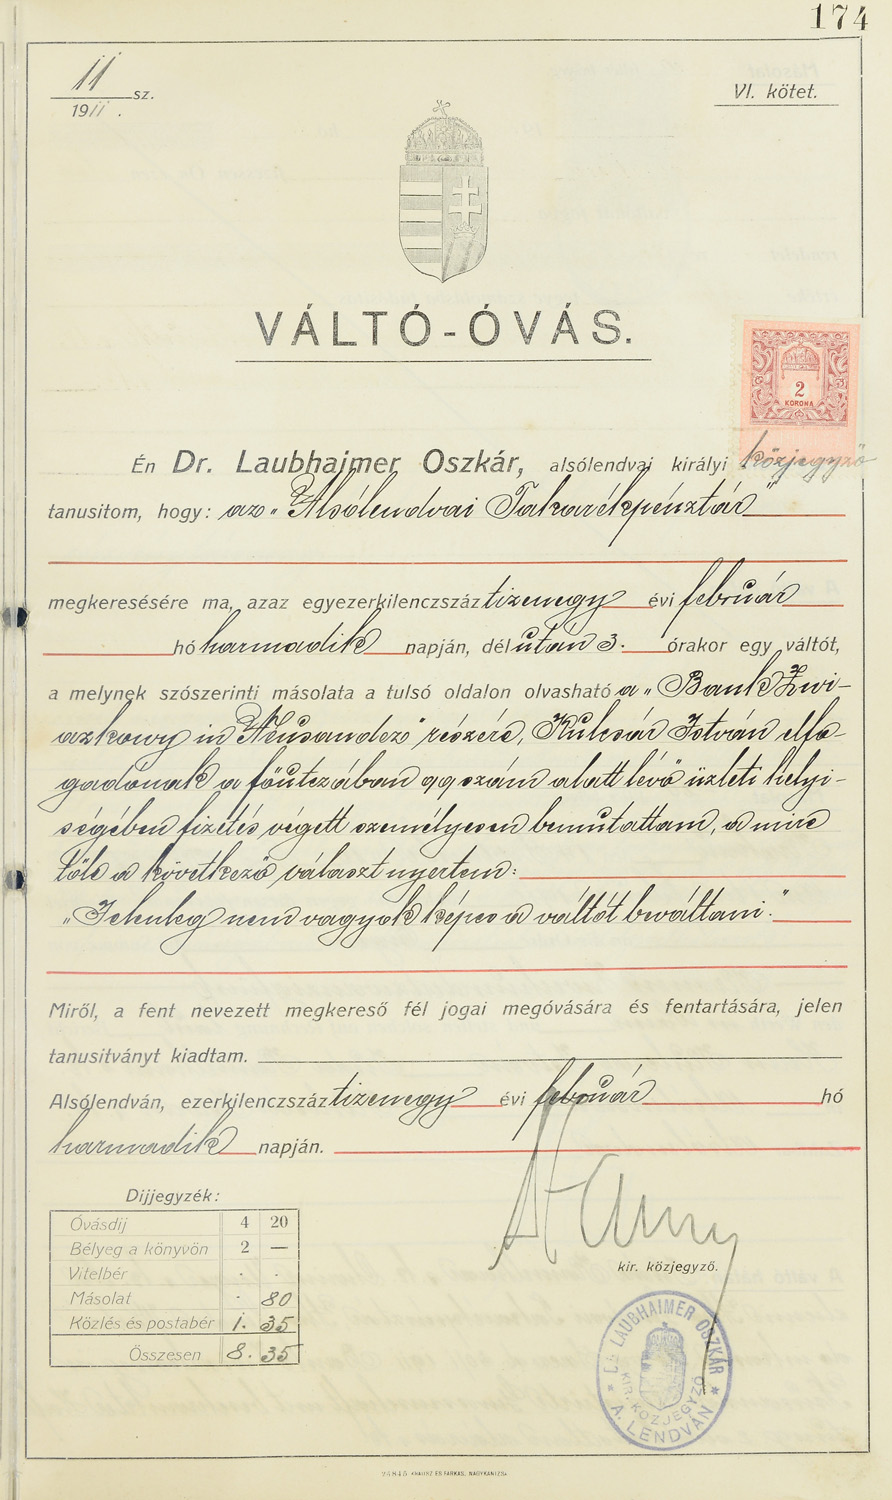 174
11 sz.
1911.
VI. kötet.
VÁLTÓ-ÓVÁS.
2
KORONA
Én Dr. Laubhaimer Oszkár, alsólendvai királyi közjegyző
tanusitom, hogy: az „Alsólendvai Takarékpénztár"
megkeresésére ma, azaz egyezerkilenczszáz tizenegy évi február
hó harmadik napján, dél után 3. órakor egy váltót,
a melynek szószerinti másolata a tulsó oldalon olvasható a „Bank Zwi-
azkowy in Neusandez" részére, Kulcsár István elfo-
gadónak a főutczában 99 szám alatt lévő üzleti helyi-
ségében fizetés végett személyesen bemutattam, a mire
tőle a következő választ nyertem:
„Jelenleg nem vagyok képes a váltót beváltani."
Miről, a fent nevezett megkereső fél jogai megóvására és fentartására, jelen
tanusitványt kiadtam.
Alsólendván, ezerkilenczszáz tizenegy évi február hó
harmadik napján.
Dijjegyzék:
Óvásdij 4 20
Bélyeg a könyvön 2 —
Vitelbér . .
Másolat . 80
Közlés és postabér 1. 35
Összesen 8. 35
kir. közjegyző.
Dr. LAUBHAIMER OSZKÁR
KIR. KÖZJEGYZŐ
* A. LENDVÁN *
KRAUSZ ÉS FARKAS, NAGYKANIZSA